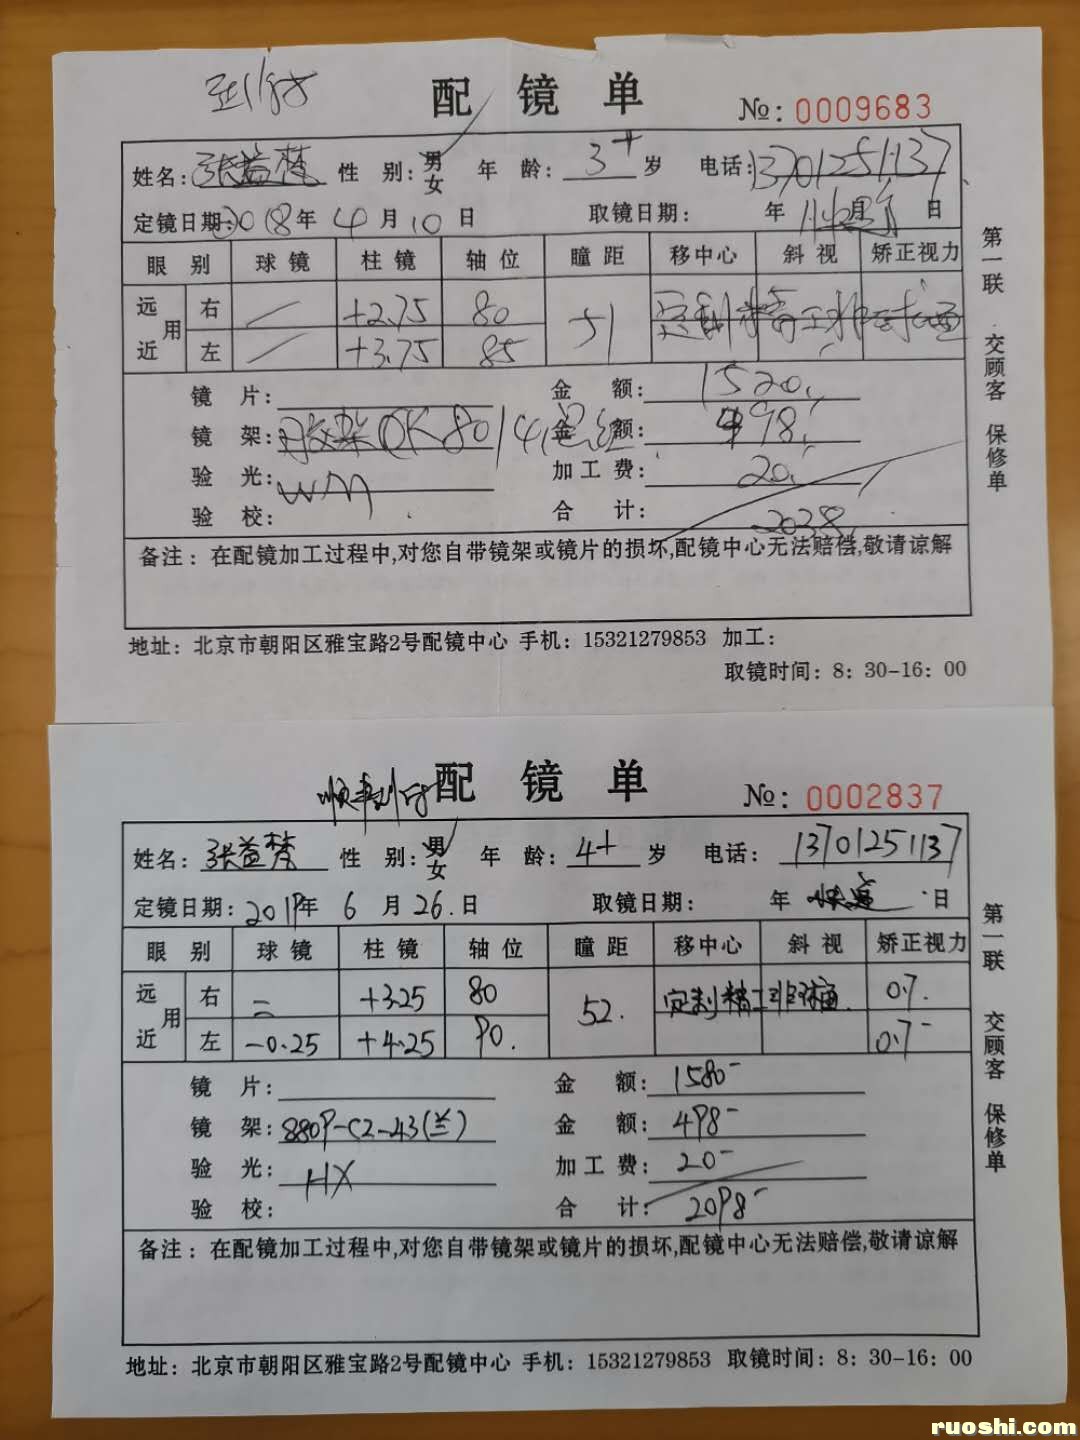 到付 配镜单 №: 0009683
姓名: 张益梵 性别: 男 年龄: 3+ 岁 电话: 13701251137
女
定镜日期: 2018年 4 月 10 日 取镜日期: 年 月 日
眼别 球镜 柱镜 轴位 瞳距 移中心 斜视 矫正视力
远 用 右 / +2.75 80 51 定制精工非球面
近 左 / +3.75 85
镜片: 金额: 1520.
镜架: OK80 金额: 498.
验光: WM 加工费: 20.
验校: 合计: 2038.
备注: 在配镜加工过程中,对您自带镜架或镜片的损坏,配镜中心无法赔偿,敬请谅解
地址: 北京市朝阳区雅宝路2号配镜中心 手机: 15321279853 加工:
取镜时间: 8: 30-16: 00
第一联 交顾客 保修单
顺丰到付 配镜单 №: 0002837
姓名: 张益梵 性别: 男 年龄: 4+ 岁 电话: 13701251137
女
定镜日期: 2019年 6 月 26. 日 取镜日期: 年 快递 日
眼别 球镜 柱镜 轴位 瞳距 移中心 斜视 矫正视力
远 用 右 = +3.25 80 52. 定制精工非球面. 0.7.
近 左 -0.25 +4.25 90. 0.7-
镜片: 金额: 1580-
镜架: 8809-C2-43(兰) 金额: 498-
验光: HX 加工费: 20-
验校: 合计: 2098-
备注: 在配镜加工过程中,对您自带镜架或镜片的损坏,配镜中心无法赔偿,敬请谅解
地址: 北京市朝阳区雅宝路2号配镜中心 手机: 15321279853 取镜时间: 8: 30-16: 00
第一联 交顾客 保修单
ruoshi.com